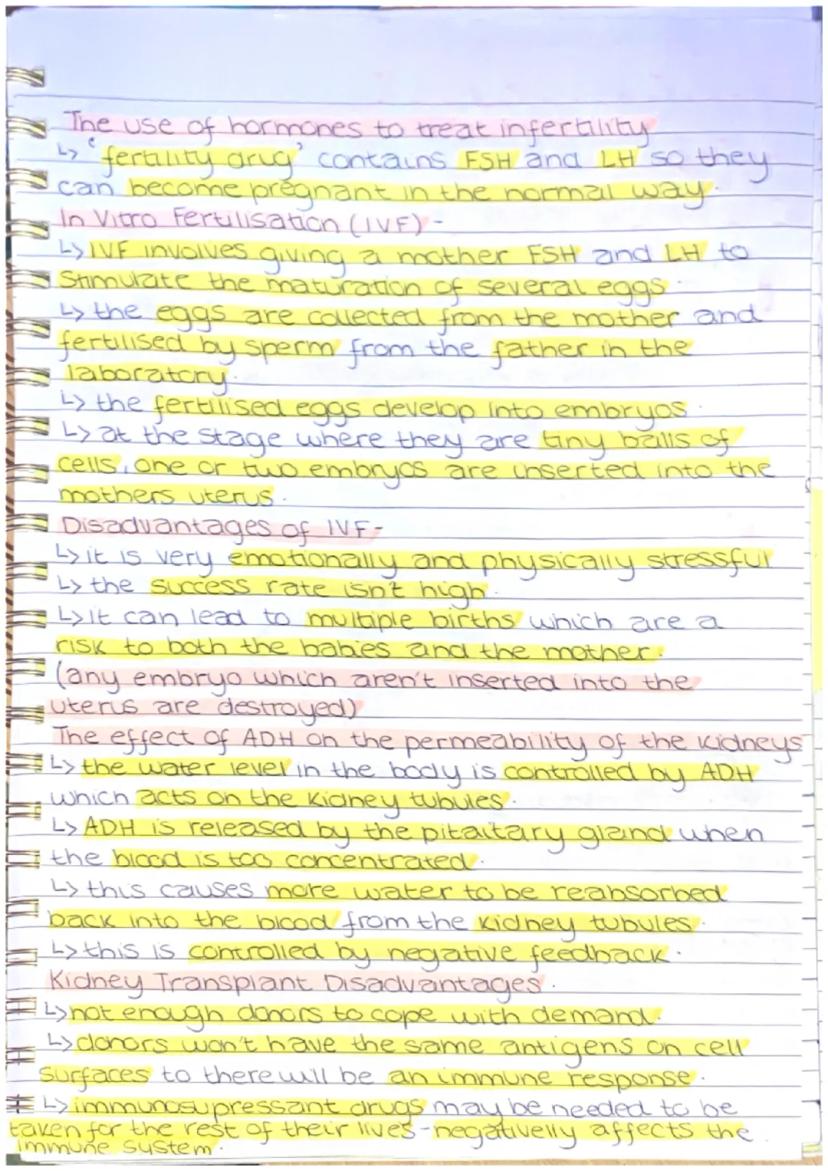 The use of hormones to treat infertility
↳ 'fertility drug' contains FSH and LH so they
can become pregnant in the normal way.
In Vitro Fertilisation (IVF) -
↳ IVF involves giving a mother FSH and LH to
stimulate the maturation of several eggs.
↳ the eggs are collected from the mother and
fertilised by sperm from the father in the
laboratory.
↳ the fertilised eggs develop into embryos.
↳ at the stage where they are tiny balls of
cells, one or two embryos are inserted into the
mothers uterus.
Disadvantages of IVF-
↳ it is very emotionally and physically stressful
↳ the success rate isn't high.
↳ it can lead to multiple births which are a
risk to both the babies and the mother.
(any embryo which aren't inserted into the
uterus are destroyed)
The effect of ADH on the permeability of the kidneys
↳ the water level in the body is controlled by ADH
which acts on the kidney tubules.
↳ ADH is released by the pitaitary gland when
the blood is too concentrated.
↳ this causes more water to be reabsorbed
back into the blood from the kidney tubules.
↳ this is controlled by negative feedback.
Kidney Transplant Disadvantages.
↳ not enough donors to cope with demand.
↳ donors won't have the same antigens on cell
surfaces to there will be an immune response.
↳ immunosupressant drugs may be needed to be
taken for the rest of their lives - negativelly affects the
immune system.